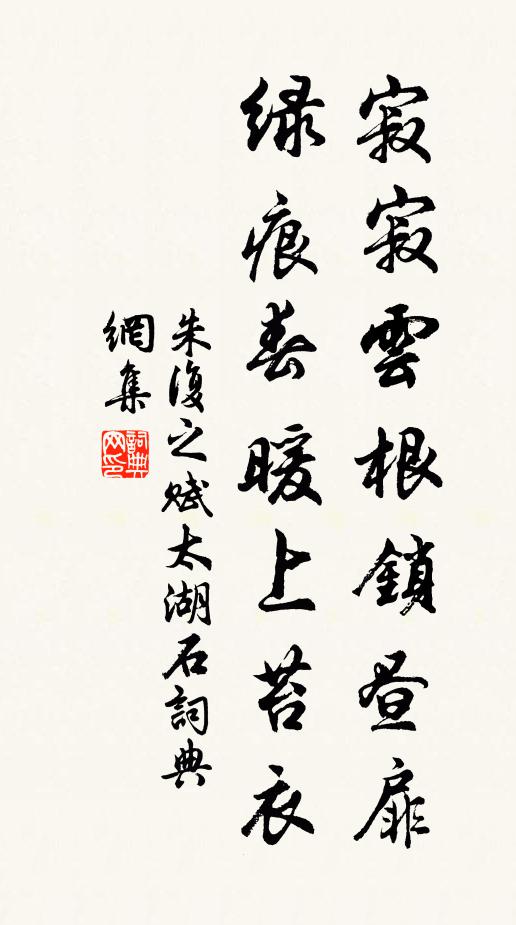 寂寂雲根鎖昼扉
緑痕春暖上苔衣
朱復之賦太湖石詞典
網集
詞典网印